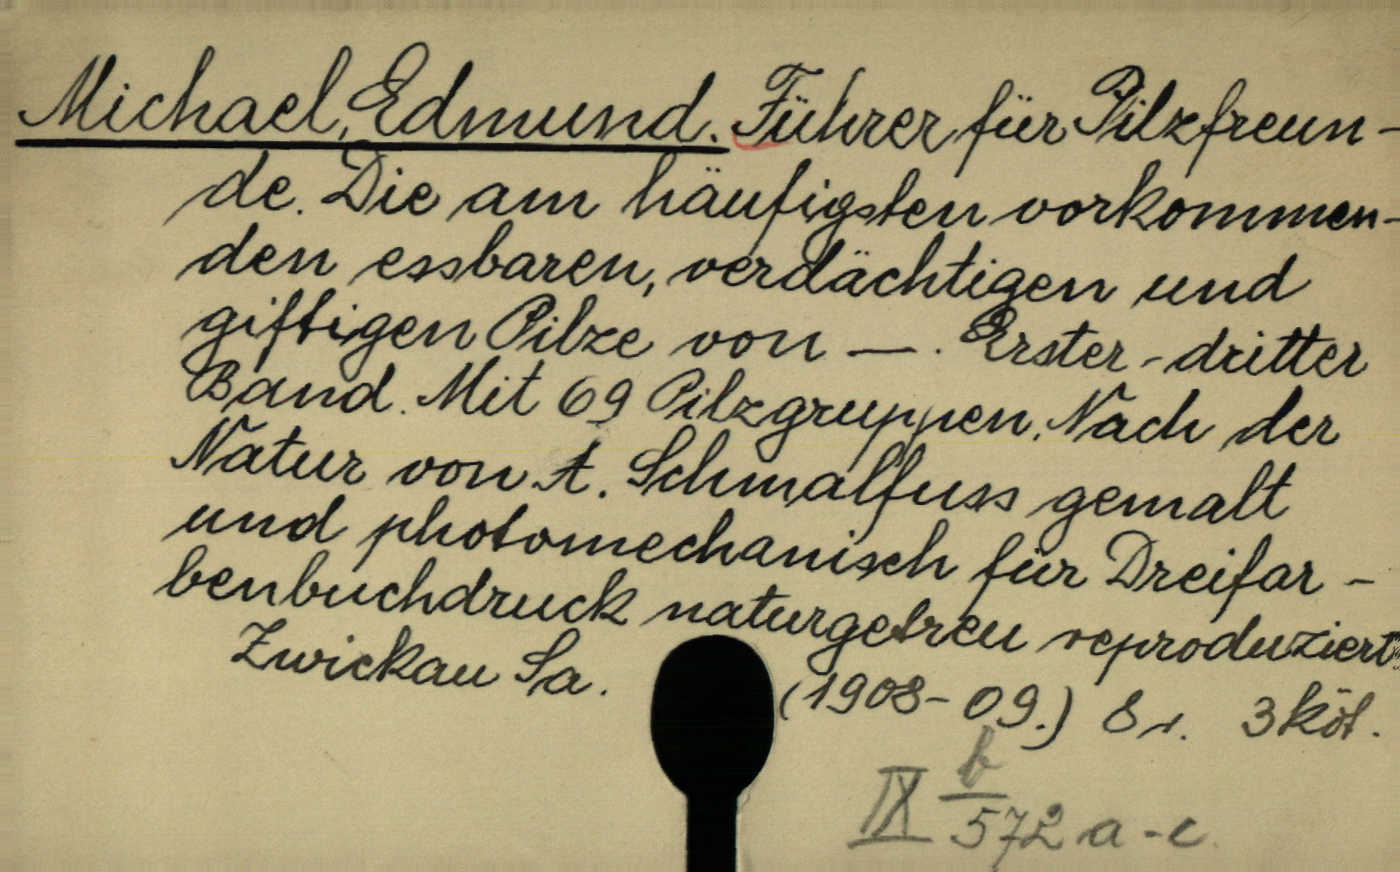 Michael, Edmund. Führer für Pilzfreun-
de. Die am häufigsten vorkommen-
den essbaren, verdächtigen und
giftigen Pilze von —. Erster-dritter
Band. Mit 69 Pilzgruppen. Nach der
Natur von A. Schmalfuss gemalt
und photomechanisch für Dreifar-
benbuchdruck naturgetreu reproduziert
Zwickau Sa. (1908-09.) 8 r. 3 köt.
IX b
572 a-c